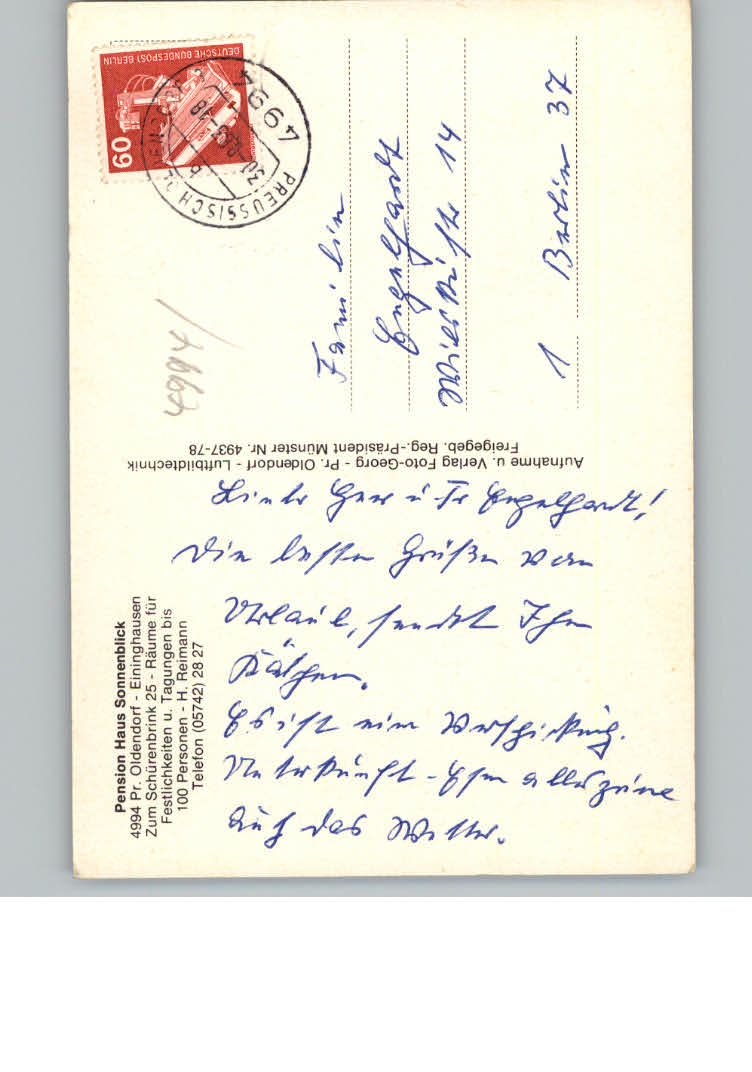 Pension Haus Sonnenblick
4994 Pr. Oldendorf - Eininghausen
Zum Schürenbrink 25 - Räume für
Festlichkeiten u. Tagungen bis
100 Personen - H. Reimann
Telefon (05742) 28 27
Liebe Herr u Fr Engelhardt!
Die besten Grüße vom
Urlaub, sendet Ihn
Käthen.
Es ist eine Verschickung.
Unterkunft - Essen alles prima
Auch das Wetter.
Aufnahme u. Verlag Foto-Georg - Pr. Oldendorf - Luftbildtechnik
Freigegeb. Reg.-Präsident Münster Nr. 4937-78
4994
DEUTSCHE BUNDESPOST BERLIN
60
4994
PREUSSISCH OLDENDORF
b
Familie
Engelhardt
14
1 Berlin 37